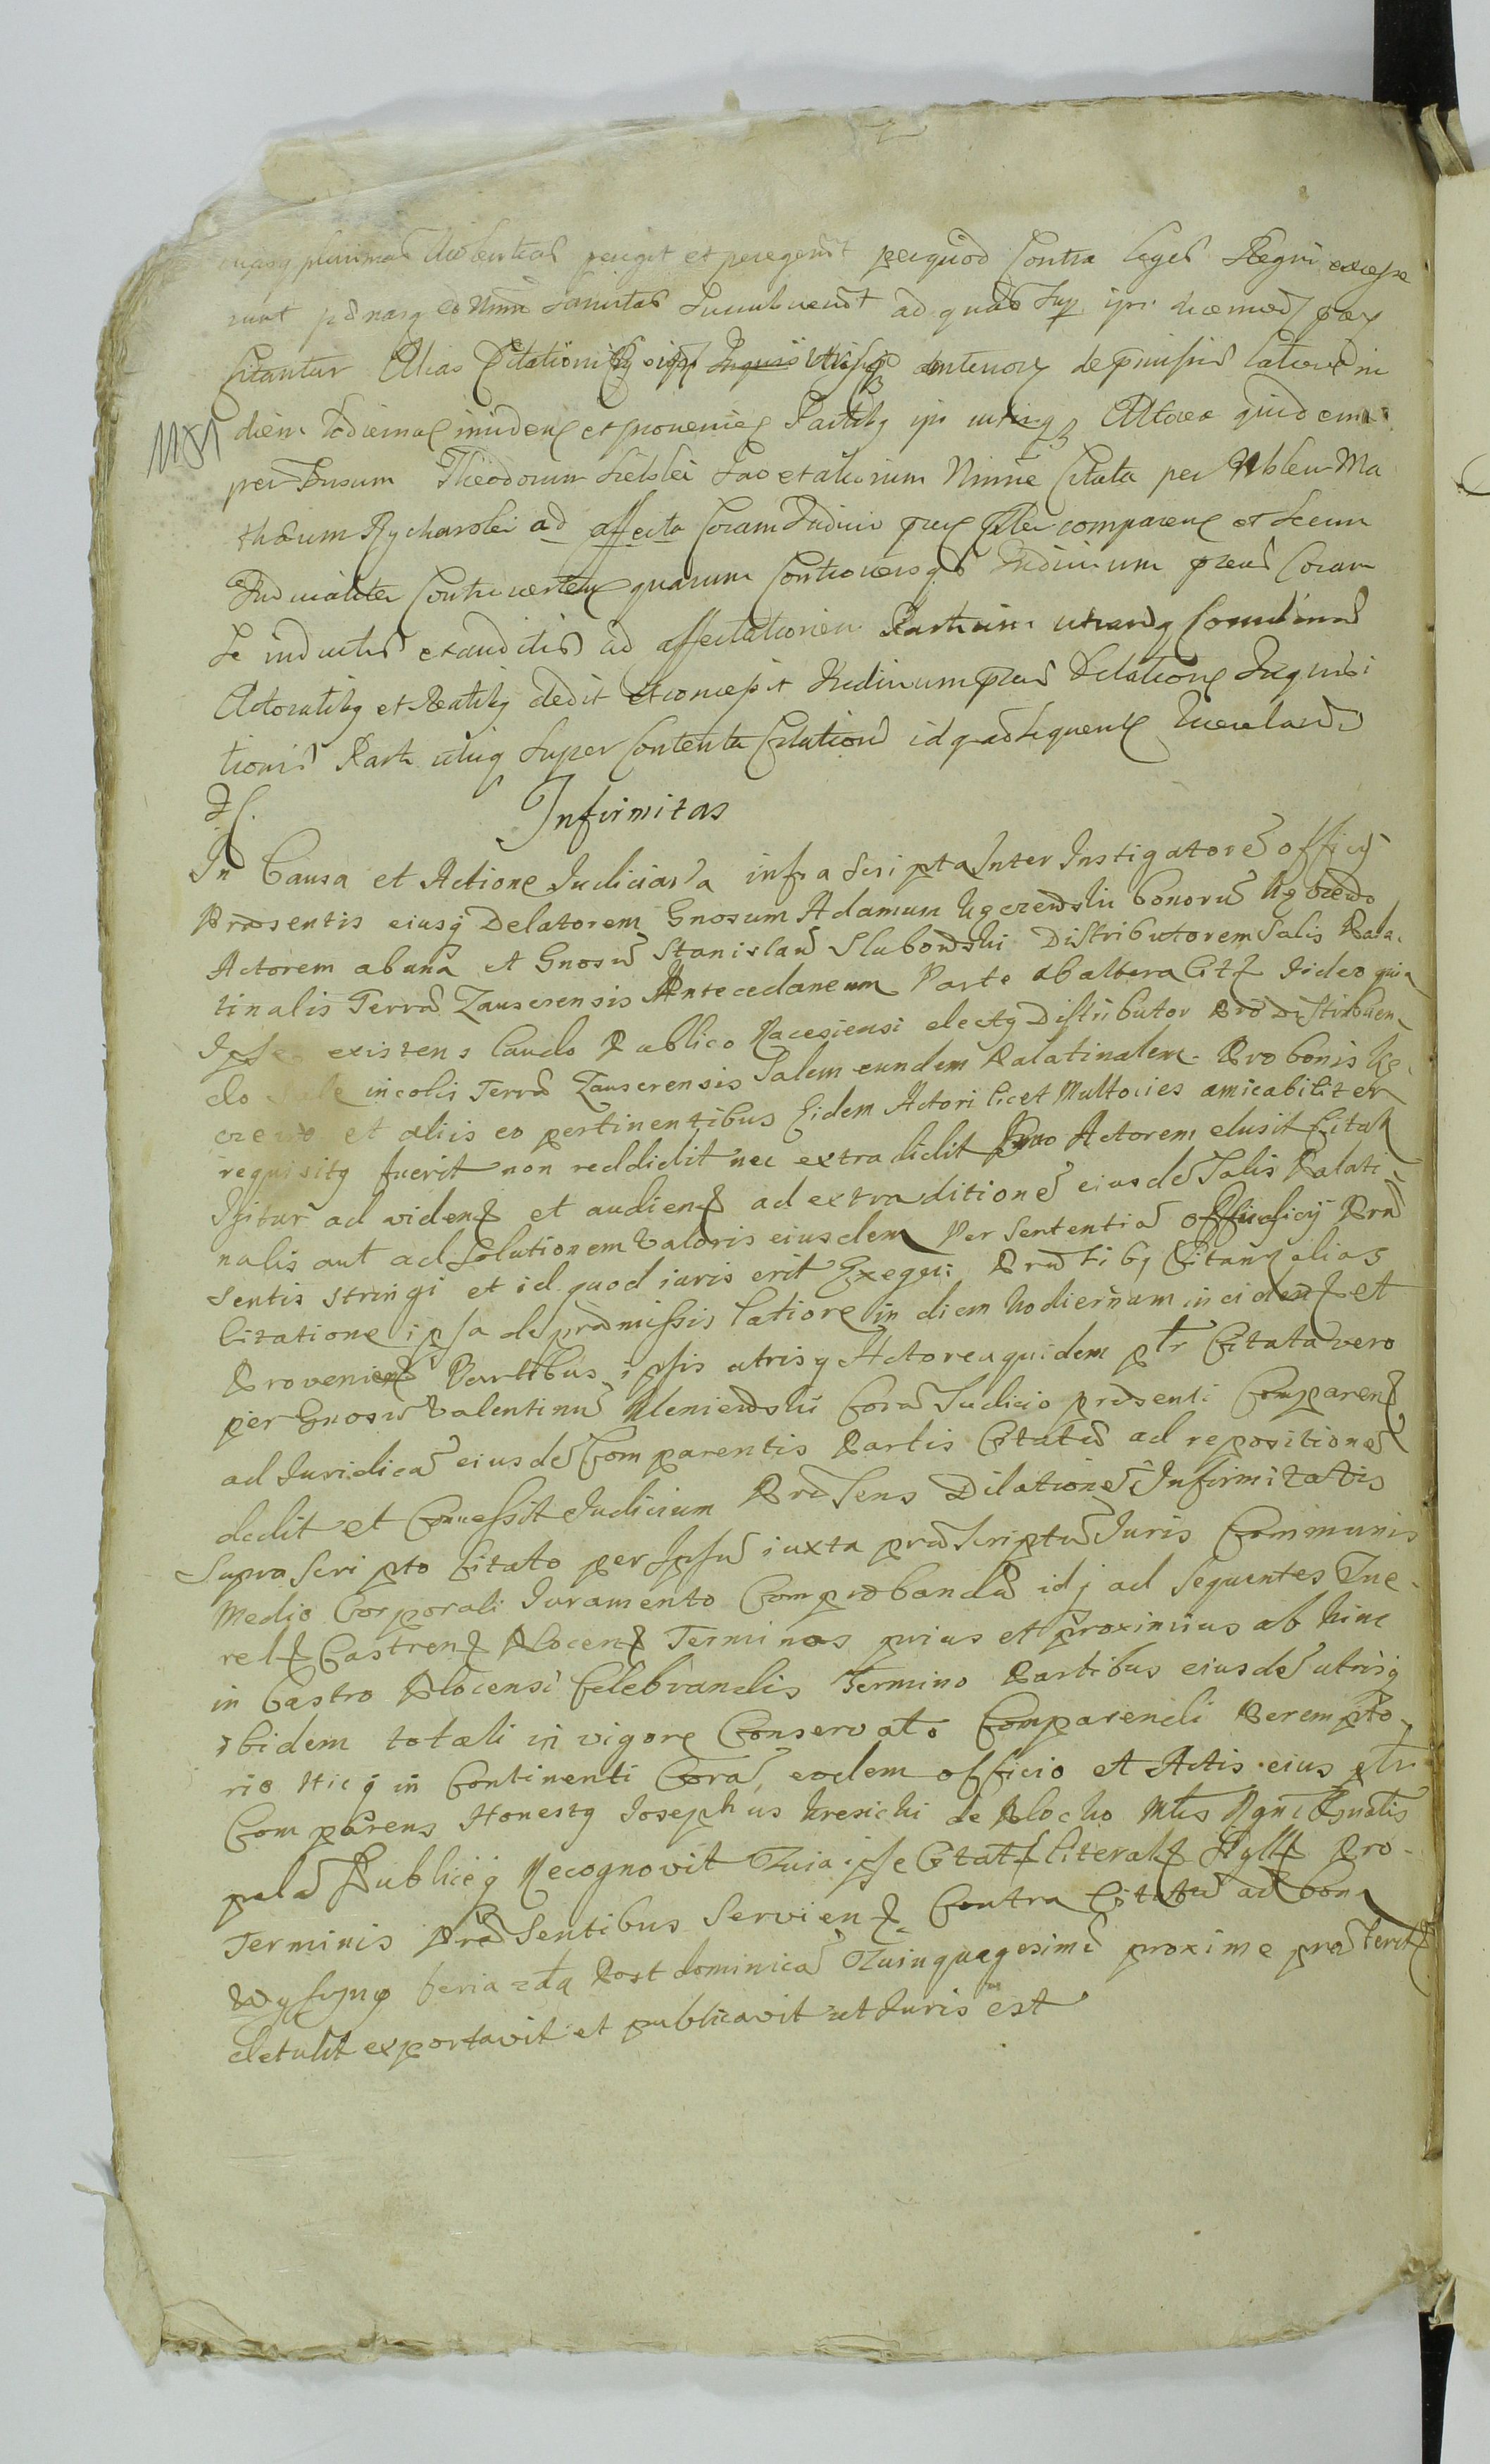 plurimas violentias peregit et peregerut perquod Contra leges Regni excesse
runt panasq eo noie sancitas Succubuerut ad quas Sup ipsi decernend prns
Citantur Alias Citationibq eisd utrisqz anteriorz de pmissis latiore in
diem hodiernaz incidenz et provenienz Partibq ipis utrisqz Actorea quidem
per Gnosum Theodorum Actorum Minime Citata per Nblem Ma
thæum Rycharski ad affecta Coram Judicio prnz plr comparenz et secum
Judicialiter Controvertenz quarum Controversijs Judicium præns Coram
Se inductis et auditis ad affectationem Partium utrarqz
Actoratibq et Reatibq dedit et concessit Judicium præns Dilationz Inquisi
tionis Parti utriq super Contenta Citationis id q ad sequenz Querelarũ
Infirmitas
In Causa et Actione Judiciaria infra Scripta Inter Instigatorẽ officij
Præsentis eiusq Delatorem Gnosum Adamum Ugrzewski bonorũ Ugrzewo
Actorem ab unã et Gnosũ Stanislaũ Slubowski Distributorem Salis Pala-
tinalis Terræ Zauscrensis Antecedaneum Parte ab altera Citz Jideo quia
Ipse existens laudo Publico Raciesiensi electq Distributor Pro Distribuen-
do sale incolis Terræ Zauscrensis Salem eundem Palatinalem Pro bonis Ug-
rzewo et aliis eo pertinentibus Eidem Actori licet Multocies amicabiliter
requisitq fuerit non reddidit nec extradidit Imo Actorem elusit Citatz
Igitur ad videnz et audienz ad extraditionẽ eiusdẽ Salis Palati-
nalis aut ad solutionem valoris eiusdem Per Sententiã officij Præ
sentis stringi et id quod iuris erit Exequi Præntibq Citanz alias
Citatione ipsa de præmissis latiore in diem hodiernum incidenz et
Provenienz Partibus ipsis utrisq Actorea quidem plr Citata vero
per Gnosũ Valentinũ Mleniewski Corã Judicio præsenti Comparenz
ad Juridicã eiusdẽ Comparentis Partis Citatæ ad repositionẽ
dedit et Concessit Judicium Præsens Dilationẽ Infirmitatis
Supra Scripto Citato per Ipsũ iuxta præscriptũ Juris Communis
Medio Corporali Juramento Comprobandã idq ad sequentes Que-
relz Castrenz Plocenz Terminos prius et proximius ab hinc
in Castro Plocensi Celebrandis Termino Partibus eiusdẽ utrisq
ibidem totali in vigore Conservato Comparendi Perempto-
rio Hicq in Continenti Corã eodem officio et Actis eius plr
Comparens Honestq Josephus Kresicki de Plocko Mtis Rgni Gnalis
palã Publiceq Recognovit Quia ipse Citatz literalz Sigllz Pro
Terminis Præsentibus Servienz Contra Citatũ ad bona
feria 2da Post dominicã Quinquagesimæ proxime præteritz
detulit exportavit et publicavit ut Juris est